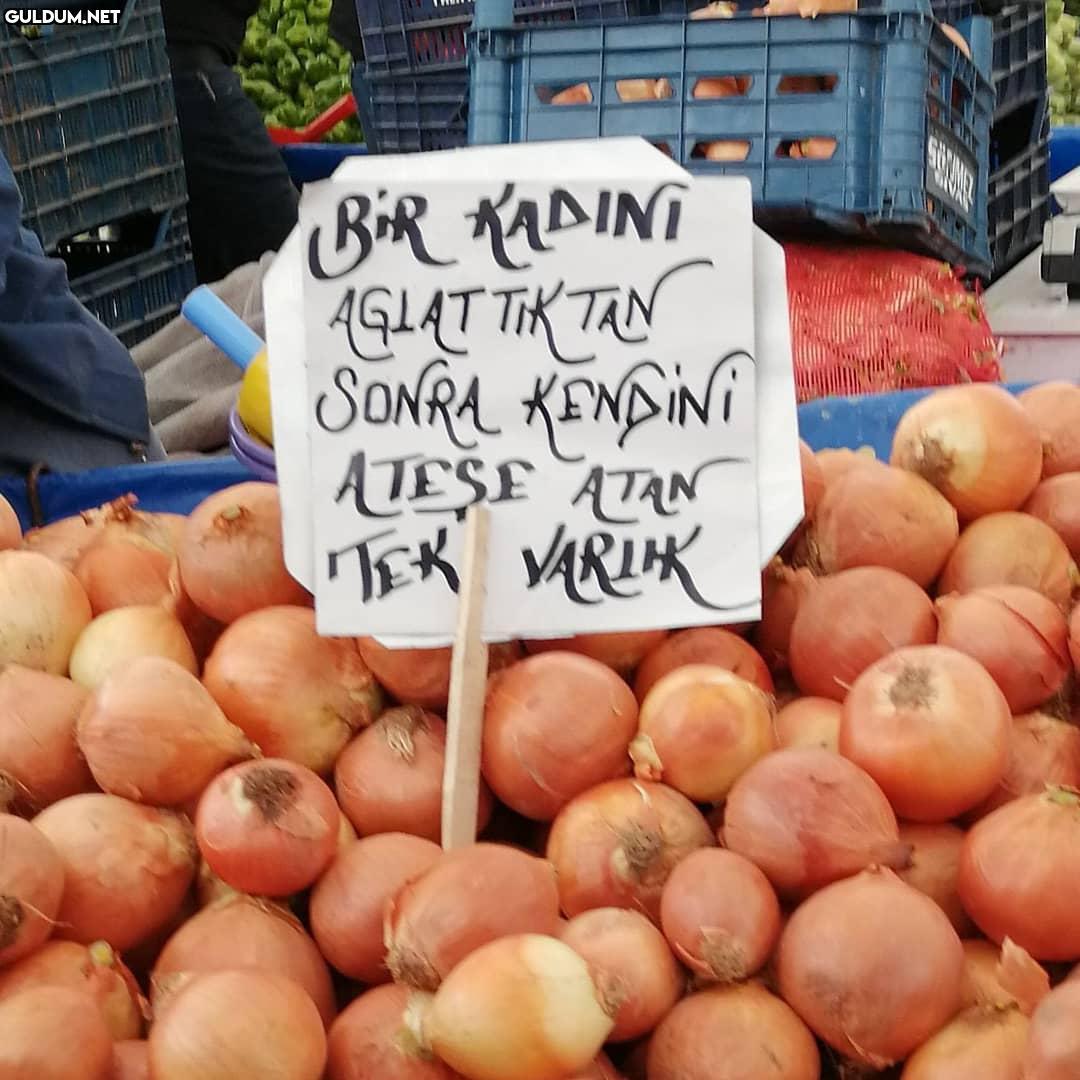 GULDUM.NET
BİR KADINI
AGLATTIKTAN
SONRA KENDİNİ
ATEŞE ATAN
TEK VARLIK